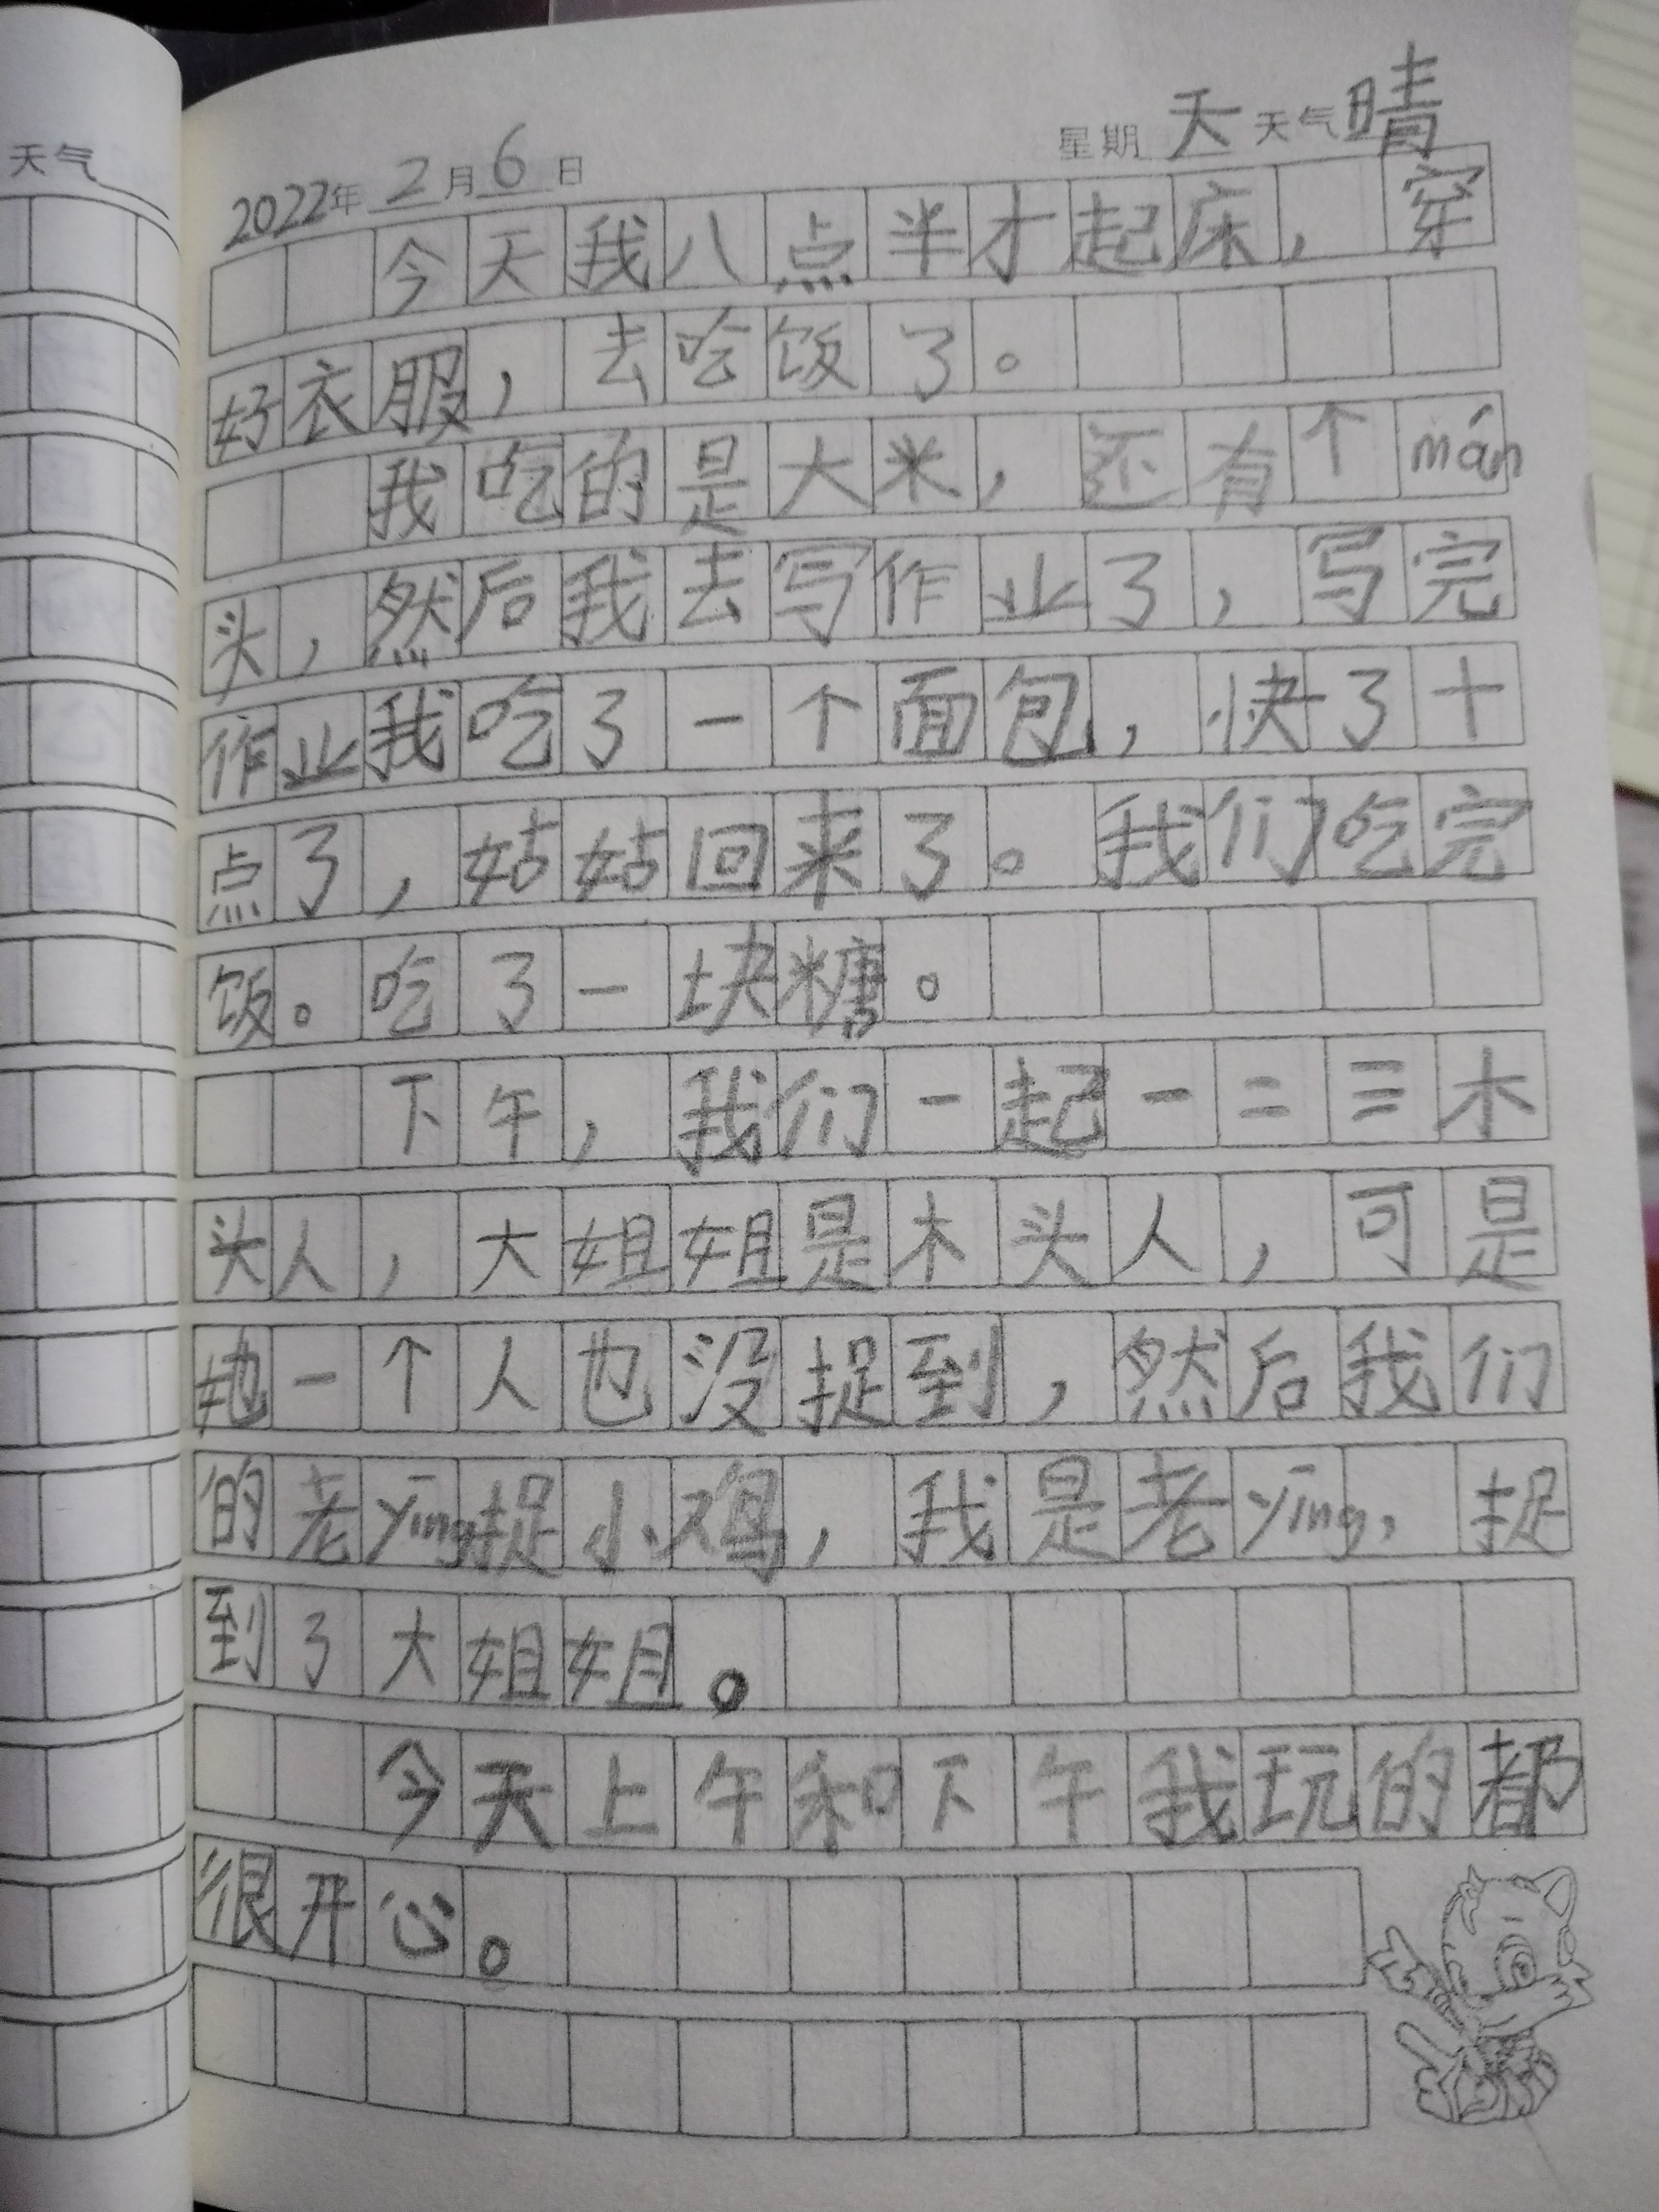 天气
2022年 2月6日 星期天 天气晴
今天我八点半才起床，穿
好衣服，去吃饭了。
我吃的是大米，还有个mán
头，然后我去写作业了，写完
作业我吃了一个面包，快了十
点了，姑姑回来了。我们吃完
饭。吃了一块糖。
下午，我们一起一二三木
头人，大姐姐是木头人，可是
她一个人也没捉到，然后我们
的老yīng捉小鸡，我是老yīng，捉
到了大姐姐。
今天上午和下午我玩的都
很开心。